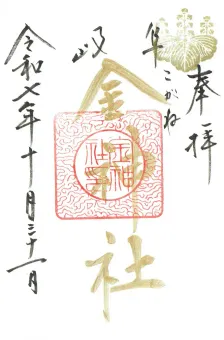 奉拝
岐阜
こがね
金神社
金神社
令和七年十月三十一日